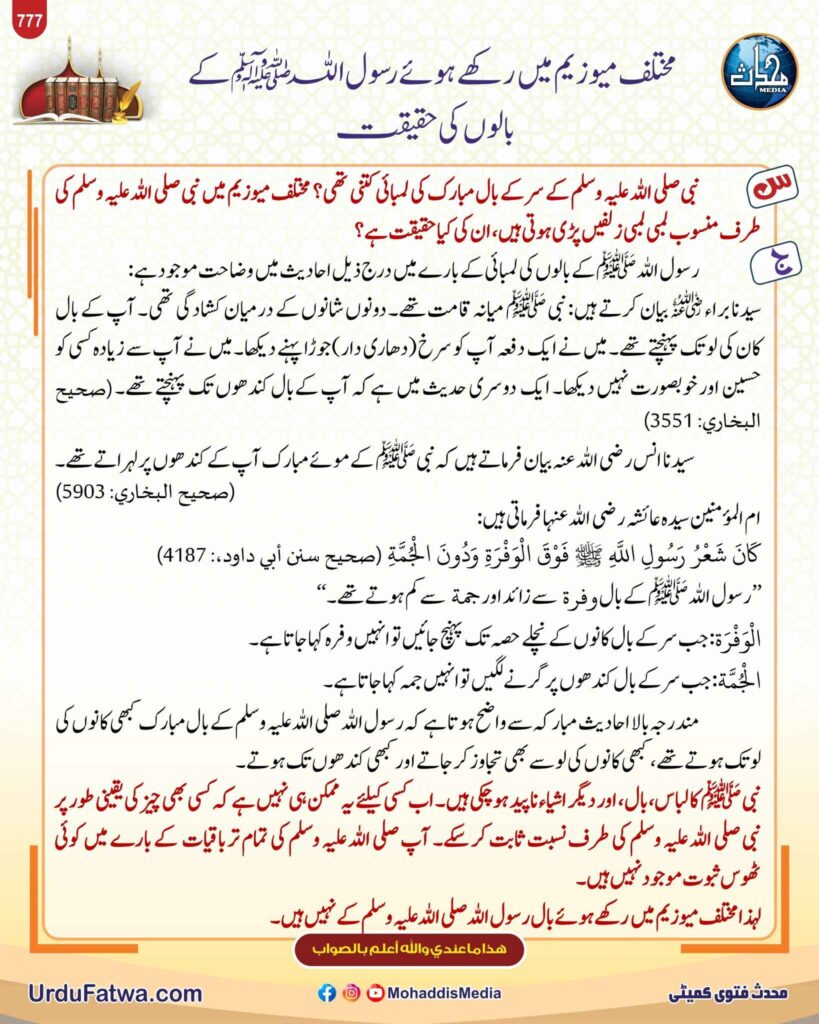 777
محدث
MEDIA
مختلف میوزیم میں رکھے ہوئے رسول اللہ ﷺ کے
بالوں کی حقیقت
س
نبی صلی اللہ علیہ وسلم کے سر کے بال مبارک کی لمبائی کتنی تھی؟ مختلف میوزیم میں نبی صلی اللہ علیہ وسلم کی
طرف منسوب لمبی لمبی زلفیں پڑی ہوتی ہیں، ان کی کیا حقیقت ہے؟
ج
رسول اللہ ﷺ کے بالوں کی لمبائی کے بارے میں درج ذیل احادیث میں وضاحت موجود ہے:
سیدنا براء رضی اللہ عنہ بیان کرتے ہیں: نبی ﷺ میانہ قامت تھے۔ دونوں شانوں کے درمیان کشادگی تھی۔ آپ کے بال
کان کی لو تک پہنچتے تھے۔ میں نے ایک دفعہ آپ کو سرخ (دھاری دار) جوڑا پہنے دیکھا۔ میں نے آپ سے زیادہ کسی کو
حسین اور خوبصورت نہیں دیکھا۔ ایک دوسری حدیث میں ہے کہ آپ کے بال کندھوں تک پہنچتے تھے۔ (صحیح
البخاري: 3551)
سیدنا انس رضی اللہ عنہ بیان فرماتے ہیں کہ نبی ﷺ کے موئے مبارک آپ کے کندھوں پر لہراتے تھے۔
(صحیح البخاري: 5903)
ام المؤمنین سیدہ عائشہ رضی اللہ عنہا فرماتی ہیں:
كَانَ شَعْرُ رَسُولِ اللَّهِ ﷺ فَوْقَ الْوَفْرَةِ وَدُونَ الْجُمَّةِ (صحیح سنن أبي داود،: 4187)
”رسول اللہ ﷺ کے بال وفرة سے زائد اور جمة سے کم ہوتے تھے۔“
الْوَفْرَة: جب سر کے بال کانوں کے نچلے حصہ تک پہنچ جائیں تو انہیں وفرہ کہا جاتا ہے۔
الْجُمَّة: جب سر کے بال کندھوں پر گرنے لگیں تو انہیں جمہ کہا جاتا ہے۔
مندرجہ بالا احادیث مبارکہ سے واضح ہوتا ہے کہ رسول اللہ صلی اللہ علیہ وسلم کے بال مبارک کبھی کانوں کی
لو تک ہوتے تھے، کبھی کانوں کی لو سے بھی تجاوز کر جاتے اور کبھی کندھوں تک ہوتے۔
نبی ﷺ کا لباس، بال، اور دیگر اشیاء ناپید ہو چکی ہیں۔ اب کسی کیلئے یہ ممکن ہی نہیں ہے کہ کسی بھی چیز کی یقینی طور پر
نبی صلی اللہ علیہ وسلم کی طرف نسبت ثابت کر سکے۔ آپ صلی اللہ علیہ وسلم کی تمام تر باقیات کے بارے میں کوئی
ٹھوس ثبوت موجود نہیں ہیں۔
لہذا مختلف میوزیم میں رکھے ہوئے بال رسول اللہ صلی اللہ علیہ وسلم کے نہیں ہیں۔
هذا ما عندي والله أعلم بالصواب
محدث فتوی کمیٹی
MohaddisMedia
UrduFatwa.com